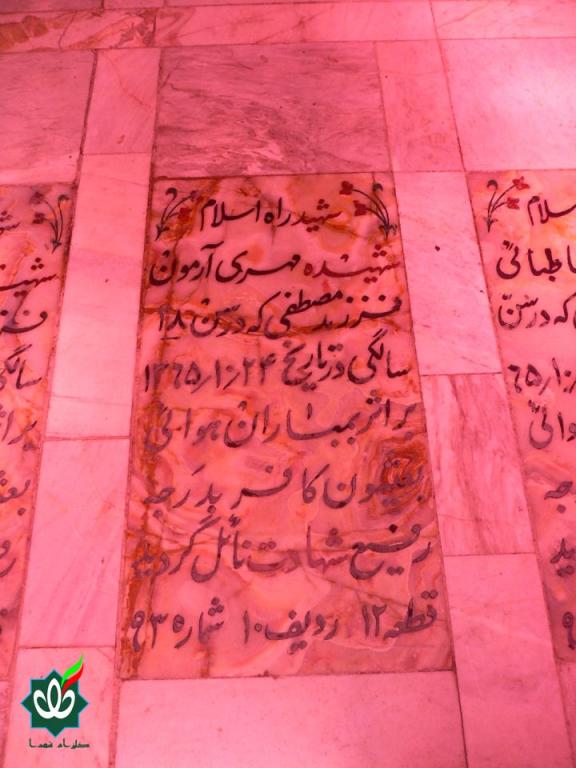 شهید راه اسلام
شهیده مهری آرمون
فرزند مصطفی که در سن ۲۸
سالگی در تاریخ ۱۳۶۵/۱۰/۲۴
بر اثر بمباران هوائی
بعثیون کافر بدرجه
رفیع شهادت نائل گردید
قطعه ۱۲ ردیف ۱۰ شماره ۹۳
سلام
طبائی
که در سن
هوائی
سالگی
گلزار شهدا